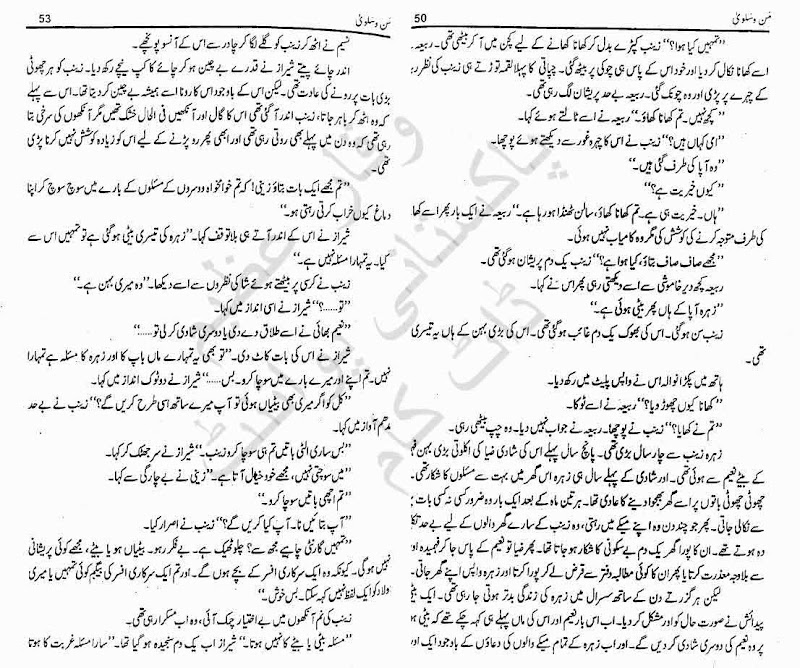 50
من و سلویٰ
”تمہیں کیا ہوا؟“ زینب کپڑے بدل کر کھانا کھانے کے لیے کچن میں آ کر بیٹھی تھی۔ ربیعہ نے
اسے کھانا نکال کر دیا اور خود اس کے پاس ہی چوکی پر بیٹھ گئی۔ چپاتی کا پہلا لقمہ توڑتے ہی زینب کی نظر ربیعہ
کے چہرے پر پڑی اور وہ چونک گئی۔ ربیعہ بے حد پریشان لگ رہی تھی۔
”کچھ نہیں۔ تم کھانا کھاؤ۔“ ربیعہ نے اسے ٹالتے ہوئے کہا۔
”امی کہاں ہیں؟“ زینب نے اس کا چہرہ غور سے دیکھتے ہوئے پوچھا۔
”وہ آپا کی طرف گئی ہیں۔“
”کیوں خیریت ہے؟“
”ہاں۔ خیریت ہی ہے۔ تم کھانا کھاؤ، سالن ٹھنڈا ہو رہا ہے۔“ ربیعہ نے ایک بار پھر اسے کھانے
کی طرف متوجہ کرنے کی کوشش کی مگر وہ کامیاب نہیں ہوئی۔
”مجھے صاف صاف بتاؤ، کیا ہوا ہے؟“ زینب یک دم پریشان ہو گئی تھی۔
ربیعہ کچھ دیر خاموشی سے اسے دیکھتی رہی پھر اس نے کہا۔
”زہرہ آپا کے ہاں پھر بیٹی ہوئی ہے۔“
زینب سن ہو گئی۔ اس کی بھوک یک دم غائب ہو گئی تھی۔ اس کی بڑی بہن کے ہاں یہ تیسری
تھی۔
ہاتھ میں پکڑا نوالہ اس نے واپس پلیٹ میں رکھ دیا۔
”کھانا کیوں چھوڑ دیا؟“ ربیعہ نے اسے ٹوکا۔
”تم نے کھایا؟“ زینب نے پوچھا۔ ربیعہ نے جواب نہیں دیا۔ وہ چپ بیٹھی رہی۔
زہرہ زینب سے چار سال بڑی تھی۔ پانچ سال پہلے اس کی شادی ضیا کی اکلوتی بڑی بہن فہمیدہ
کے بیٹے نعیم سے ہوئی تھی۔ اور شادی کے پہلے سال ہی زہرہ اس گھر میں بہت سے مسئلوں کا شکار تھی۔
چھوٹی چھوٹی باتوں پر اسے گھر بھجوا دینے کا عادی تھا۔ ہر تین ماہ کے بعد ایک بار وہ ضرور کسی نہ کسی بات پر
سے نکالی جاتی۔ پھر جو چند دن وہ اپنے میکے میں رہتی، وہ زینب کے سارے گھر والوں کے لیے بے حد تکلیف
دہ ہوتے تھے۔ ان کا پورا گھر یک دم بے سکونی کا شکار ہو جاتا تھا۔ پھر ضیا تو نعیم کے پاس جا کر فہمیدہ اور
سے بلاوجہ معذرت کرتا یا پھر ان کا کوئی مطالبہ دفتر سے قرض لے کر پورا کرتا اور زہرہ واپس اپنے گھر جاتی
لیکن ہر گزرتے دن کے ساتھ سسرال میں زہرہ کی زندگی بدتر ہوتی جا رہی تھی۔ ایک بیٹی
پیدائش نے صورت حال کو اور مشکل کر دیا۔ اب اس بار نعیم اور اس کی ماں پہلے ہی کہہ چکے تھے کہ بیٹی ہونے
پر وہ نعیم کی دوسری شادی کر دیں گے۔ اور اب زہرہ کے تمام میکے والوں کی دعاؤں کے باوجود ایک اور
53
من و سلویٰ
نسیم نے اٹھ کر زینب کو گلے لگا کر چادر سے اس کے آنسو پونچھے۔
اندر چائے پیتے شیراز نے قدرے بے چین ہو کر چائے کا کپ نیچے رکھ دیا۔ زینب کو ہر چھوٹی
بڑی بات پر رونے کی عادت تھی۔ لیکن اس کے باوجود اس کا رونا اسے ہمیشہ بے چین کر دیتا تھا۔ اس سے پہلے
کہ وہ اٹھ کر باہر جاتا، زینب اندر آ گئی تھی اس کا گال اور آنکھیں فی الحال خشک تھیں مگر آنکھوں کی سرخی بتا
رہی تھی کہ وہ دن میں پہلے بھی روتی رہی تھی اور ابھی پھر رو پڑنے کے لیے اس کو زیادہ کوشش نہیں کرنا پڑی
تھی۔
”تم مجھے ایک بات بتاؤ زینی! کہ تم خوامخواہ دوسروں کے مسئلوں کے بارے میں سوچ سوچ کر اپنا
دماغ کیوں خراب کرتی رہتی ہو۔“
شیراز نے اس کے اندر آتے ہی بلا توقف کہا۔ ”زہرہ کی تیسری بیٹی ہو گئی ہے تو تمہیں اس سے
کیا۔ یہ تمہارا مسئلہ نہیں ہے۔“
زینب نے کرسی پر بیٹھتے ہوئے شاکی نظروں سے اسے دیکھا۔ ”وہ میری بہن ہے۔“
”تو.....؟“ شیراز نے اسی انداز میں کہا۔
”نعیم بھائی نے اسے طلاق دے دی یا دوسری شادی کر لی تو.....“
شیراز نے اس کی بات کاٹ دی۔ ”تو بھی یہ تمہارے ماں باپ کا اور زہرہ کا مسئلہ ہے تمہارا
نہیں۔ تم اپنے اور میرے بارے میں سوچا کرو۔ بس.....“ شیراز نے دو ٹوک انداز میں کہا۔
”کل کو اگر میری بھی بیٹیاں ہوئی تو آپ میرے ساتھ اسی طرح کریں گے؟“ زینب نے بے حد
مدھم آواز میں کہا۔
”بس ساری الٹی باتیں تم ہی سوچا کرو زینب۔“ شیراز نے سر جھٹک کر کہا۔
”میں سوچتی نہیں، مجھے خود خیال آتا ہے۔“ زینی نے بے چارگی سے کہا۔
”تم اچھی باتیں سوچا کرو۔“
”آپ بتائیں نا۔ آپ کیا کریں گے؟“ زینب نے اصرار کیا۔
”تمہیں گارنٹی چاہیے مجھ سے؟ چلو ٹھیک ہے۔ بے فکر رہو۔ بیٹیاں ہو یا بیٹے، مجھے کوئی پریشانی
نہیں ہو گی۔ کیونکہ وہ ایک سرکاری افسر کے بچے ہوں گے۔ اور تم ایک سرکاری افسر کی بیگم کوئی تمہیں یا میری
اولاد کو ایک لفظ نہیں کہہ سکتا۔ بس خوش۔“
زینب کی نم آنکھوں میں بے اختیار چمک آئی، وہ اب مسکرا رہی تھی۔
”مسئلہ بیٹی یا بیٹے کا نہیں ہوتا۔“ شیراز اب یک دم سنجیدہ ہو گیا تھا۔ ”سارا مسئلہ غربت کا ہوتا